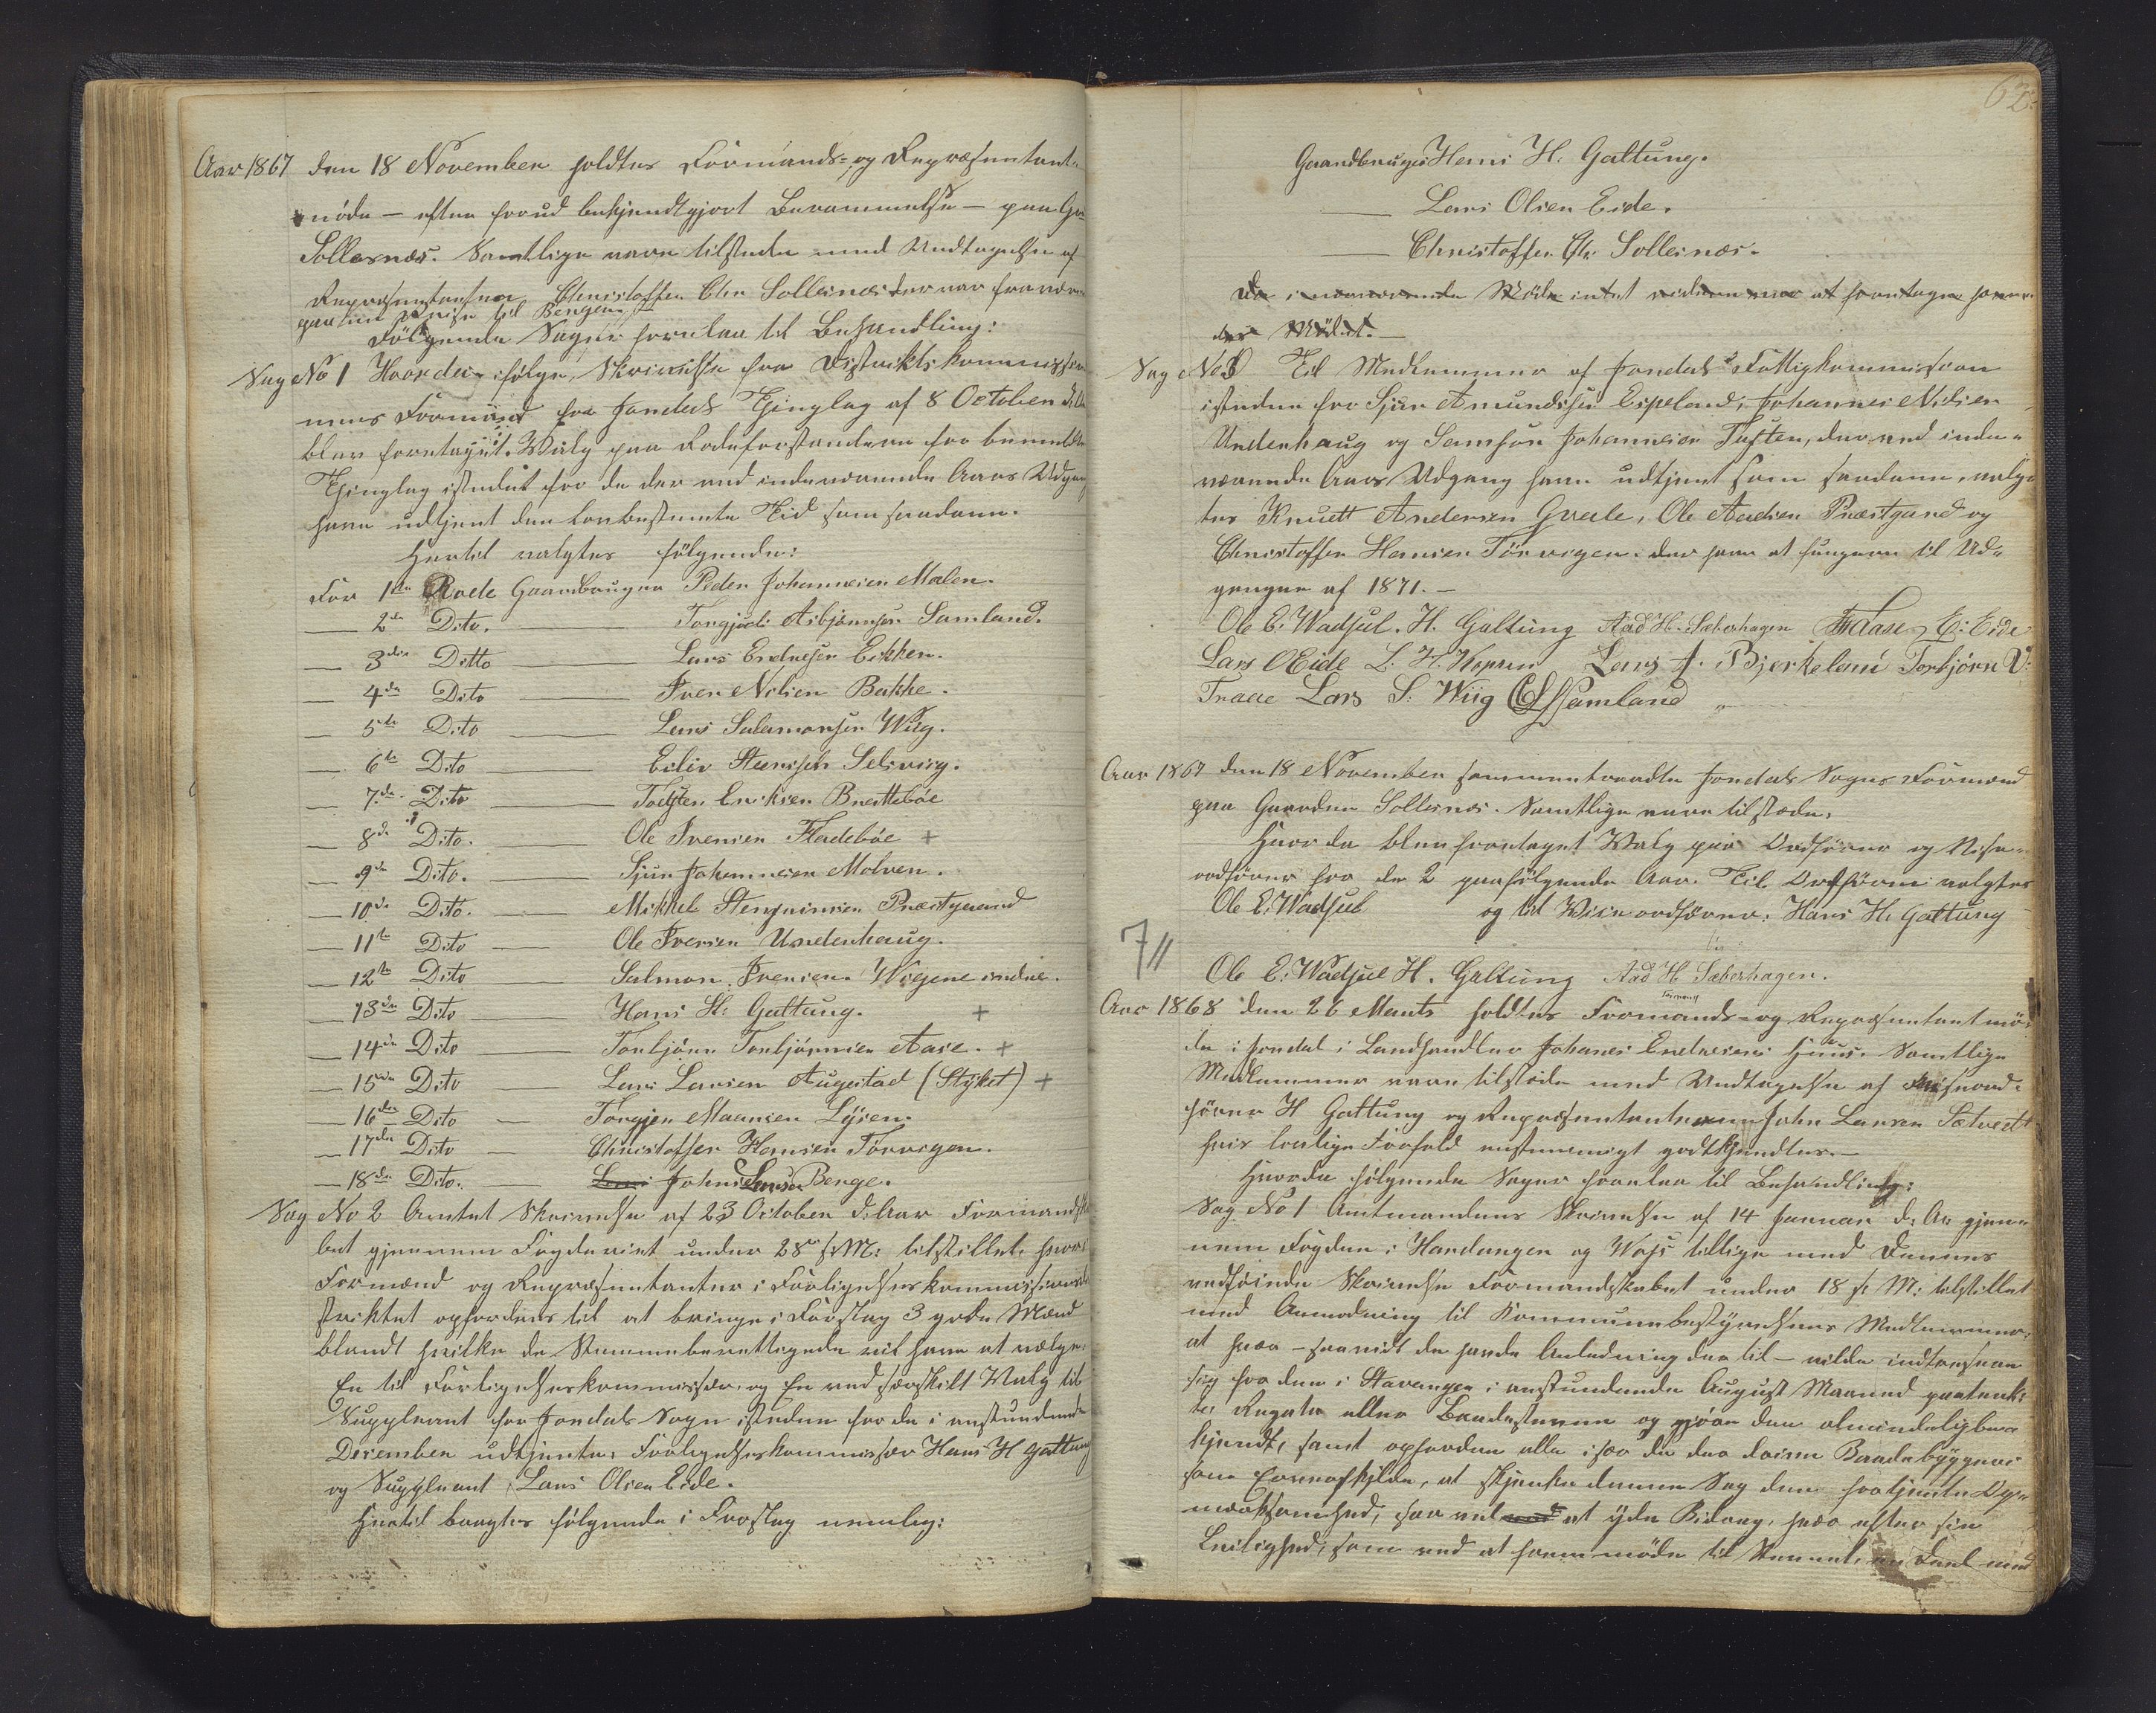 Aar 1867 den 18 November holdtes Formands- og Repræsentant-
möde – efter forud bekjendtgjort Berammelse – paa Gr
Sollesnæs. Samtlige vare tilstede med Undtagelse af
Repræsentanten Christoffer Chr Sollesnæs der var fraværen
paa en Reise til Bergen.
Fölgende Sager forelaa til Behandling:
Sag No 1 Hvorda ifölge Skrivelse fra Distriktskommissio
nens Formand for Jondals Thinglag af 8 October d. A
blev foretaget Valg paa Rodeforstandere for bemeldte
Thinglag istedet for de der ved indeværende Aars Udgang
have udtjent den lovbestemte Tid som saadanne.
Hertil valgtes fölgende:
For 1ste Rode Gaardbruger Peder Johannesen Malen.
— 2den Dito. — Torgjuls Asbjørnsen Samland.
— 3die Ditto — Lars Endresen Eikken.
— 4de Dito — Iver Nilsen Bakke.
— 5te Dito — Lars Salamonsen Wiig.
— 6te Dito — Eiliv Steensen Selsvig.
— 7de Dito — Torsten Eriksen Brattebøe
— 8de Dito. — Ole Iversen Fladebøe +
— 9de Dito. — Sjur Johannesen Molven.
— 10de Dito. — Mikkel Stengrimsen Præstgaard
— 11te Dito — Ole Iversen Underhaug.
— 12te Dito — Salmon Iversen Wigene indre.
— 13de Dito — Hans H. Galtung. +
— 14de Dito — Torbjörn Torbjörnsen Aase. +
— 15de Dito — Lars Larsen Augestad (Stÿket) +
— 16de Dito — Torgjer Maansen Lÿsen.
— 17de Dito — Christoffer Hansen Törvigen.
— 18de Dito. — Lars Johns Larsen Berge.
Sag No 2 Amtet Skrivelse af 23 October d. Aar Formandska
bet gjennem Fogderiet under 28 s: M: tilstillet, hvori
Formænd og Repræsentanter i Forligelseskommissionsdi
striktet opfordres til at bringe i Forslag 3 gode Mænd
blandt hvilke de Stemmeberettigede vil have at vælge
En til Forligelseskommissær og En ved særskilt Valg til
Suppleant for Jondals Sogn isteden for de i anstundende
December udtjente, Forligelseskommissær Hans H Galtung
og Suppleant Lars Olsen Eide.
Hertil bragtes fölgende i Forslag nemlig:
62
Gaardbruger Hans H. Galtung.
— Lars Olsen Eide.
— Christoffer Chr. Sollesnæs.
Da i nærværende Möde intet videre var at foretages hæve
des Mödet. –
Sag No 3 Til Medlemmer af Jondals Fattigkommission
isteden for Sjur Amundsen Espeland, Johannes Nilsen
Underhaug og Samson Johannesen Tuften, der ved inde-
værende Aars Udgang have udtjent som saadanne, valg-
tes Knuett Andersen Qvale, Ole Aadsen Præstgard og
Christoffer Hansen Törvigen, der have at fungere til Ud-
gangen af 1871. –
Ole E. Wadsel. H. Galtung Aad H. Sæbershagen E: Eide
Lars OEide L. H. Lars A. Bjerkeland Torbjörn
Traae Lars S. Wiig Samland
Aar 1867 den 18 November sammentraadte Jondals Sogns Formænd
paa Gaarden Sollesnæs. Samtlige vare tilstede.
Hvor da blev foretaget Valg paa Ordförer og Vise-
ordförer for de 2 paafölgende Aar. Til Ordförer valgtes
Ole E. Wadsel og til Viseordförer: Hans H. Galtung
7//
Ole E. Wadsel H. Galtung Aad H. Sæbershagen.
Aar 1868 den 26 Marts holdtes Formands- og Repræsentantmö-
de i Jondal i Landhandler Johanes Endresens Huus. Samtlige
Medlemmer vare tilstede med Undtagelse af Viseord-
förer H Galtung og Repræsentanten John Larsen Sætvedt
hvis lovlige Forfald enstemmigt godtkjendtes. –
Hvorda fölgende Sager forelaa til Behandling:
Sag No 1 Amtmandens Skrivelse af 14 Januar d: Ar gjen-
nem Fogden i Hardanger og Wofs tillige med Dennes
vedföiende Skrivelse Formandskabet under 18 s. M: tilstillet
med Anmodning til Kommunebestÿrelsens Medlemmer,
at hver – saavidt de havde Anledning der til – vilde indteressere
sig for den i Stavanger i anstundende August Maaned paatenk-
te Regata eller Baadestevne og gjöre den almindeligber
kjendt, samt opfordre alle især de der drive Baadebÿggeri
som Ernærskilde, at skjenke denne Sag den fortjente Op-
mærksomhed, saavel ved at ÿde Bidrag, hver efter sin
Leilighed, som ved at fremmöde til Stevnet, en Deel med